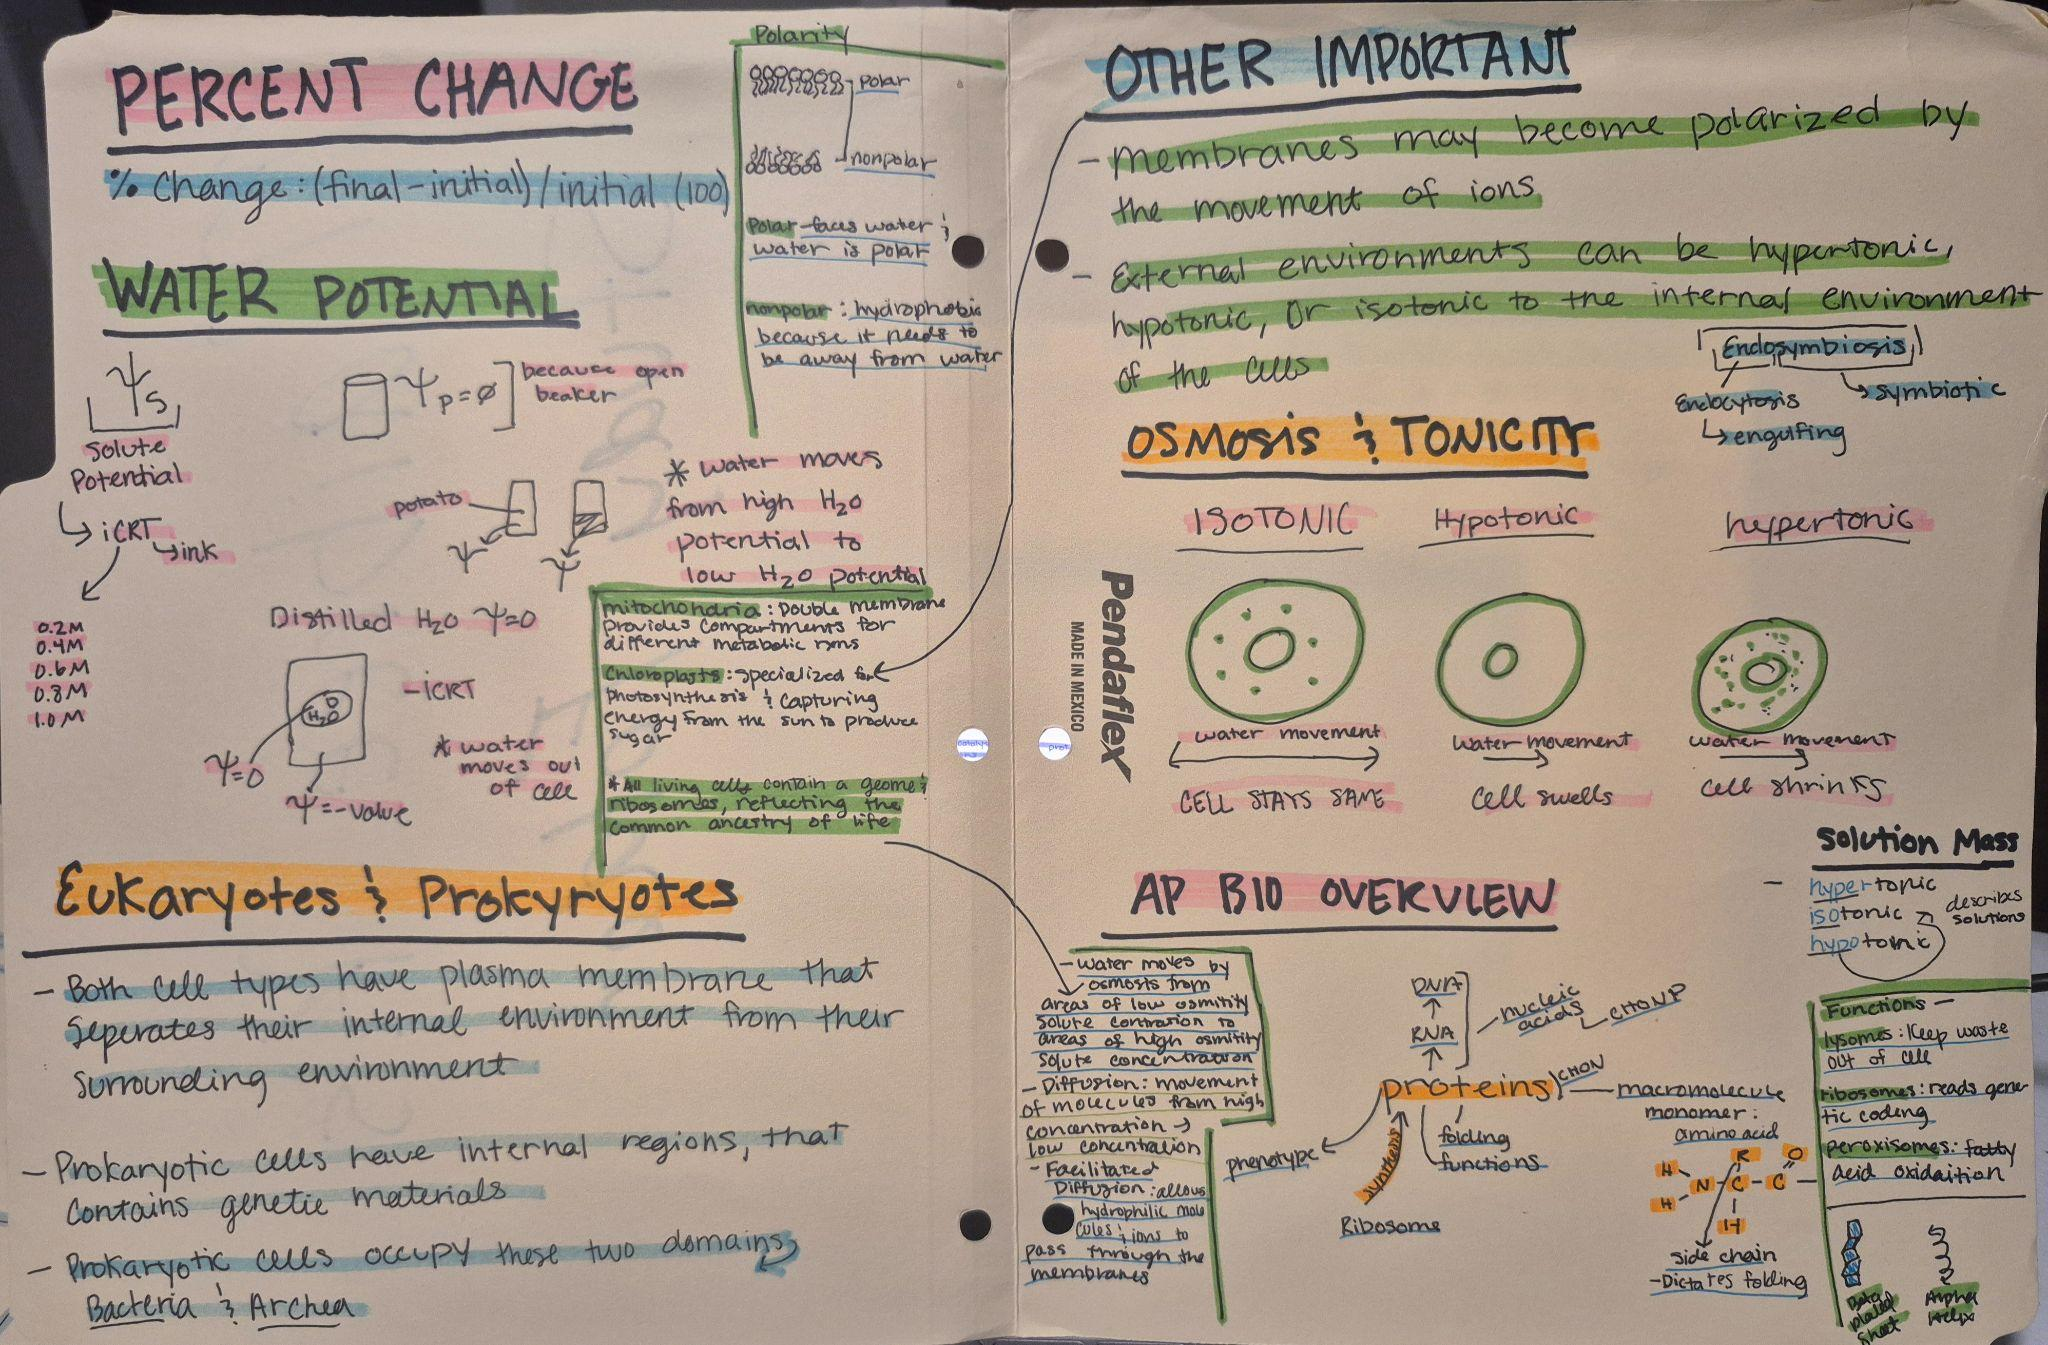 PERCENT CHANGE
% Change: (final-initial)/initial (100)
WATER POTENTIAL
Ψs
Solute
Potential
iCRT
ink
0.2M
0.4M
0.6M
0.8M
1.0M
Ψp=Ø
because open
beaker
potato
Ψ
Ψ
* water moves
from high H2O
potential to
low H2O potential
Distilled H2O Ψ=0
D
H2O
-iCRT
Ψ=0
Ψ=-value
* water
moves out
of cell
Polarity
polar
nonpolar
Polar-faces water &
water is polar
nonpolar: hydrophobic
because it needs to
be away from water
mitochondria: Double membrane
provides compartments for
different metabolic rxns
Chloroplasts: specialized for
photosynthesis & capturing
energy from the sun to produce
sugar
* All living cells contain a geome &
ribosomes, reflecting the
common ancestry of life
Eukaryotes & Prokyryotes
- Both cell types have plasma membrane that
seperates their internal environment from their
surrounding environment
- Prokaryotic cells have internal regions, that
contains genetic materials
- Prokaryotic cells occupy these two domains
Bacteria & Archea
OTHER IMPORTANT
- Membranes may become polarized by
the movement of ions
- External environments can be hypertonic,
hypotonic, or isotonic to the internal environment
of the cells
Endosymbiosis
Endocytosis
engulfing
symbiotic
OSMOSIS & TONICITY
ISOTONIC
Hypotonic
hypertonic
water movement
CELL STAYS SAME
water movement
cell swells
water movement
cell shrinks
Pendaflex
MADE IN MEXICO
AP BIO OVERVIEW
- water moves by
osmosis from
areas of low osmitity
solute contration to
areas of high osmitity
solute concentration
- Diffusion: movement
of molecules from high
concentration →
low concentration
- Facilitated
Diffusion: allows
hydrophilic mole
cules & ions to
pass through the
membranes
DNA
RNA
nucleic
acids
CHONP
proteins
CHON
phenotype
synthesis
Ribosome
folding
functions
macromolecule
monomer:
amino acid
H
H
N - C - C
R
O
H
side chain
-Dictates folding
Solution Mass
- hypertonic
isotonic
hypotonic
describes
solutions
Functions -
lysomes: Keep waste
out of cell
ribosomes: reads gene
tic coding
peroxisomes: fatty
acid oxidaition
Beta
pleated
sheet
Alpha
Helix